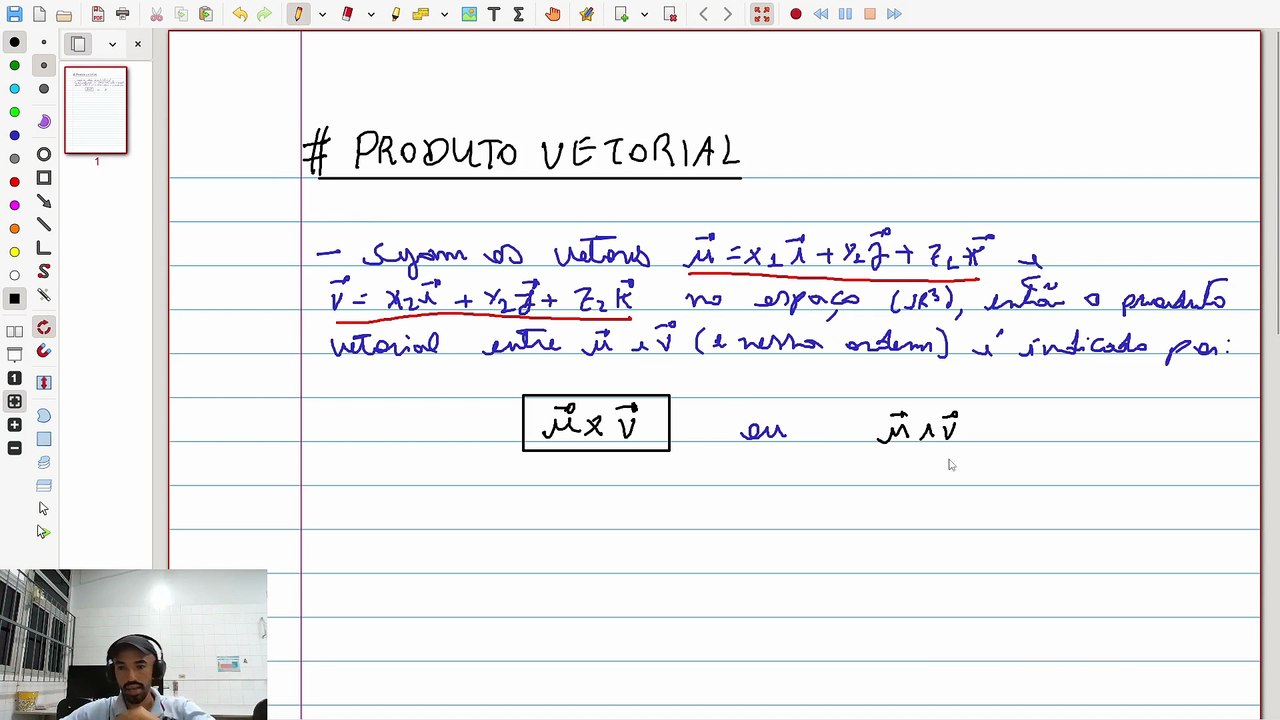 # PRODUTO VETORIAL
- Sejam os vetores u⃗ = x₁i⃗ + y₁j⃗ + z₁k⃗ e
v⃗ = x₂i⃗ + y₂j⃗ + z₂k⃗ no espaço (IR³), então o produto
vetorial entre u⃗ e v⃗ (e nessa ordem) é indicado por:
u⃗ x v⃗ ou u⃗ ∧ v⃗
1